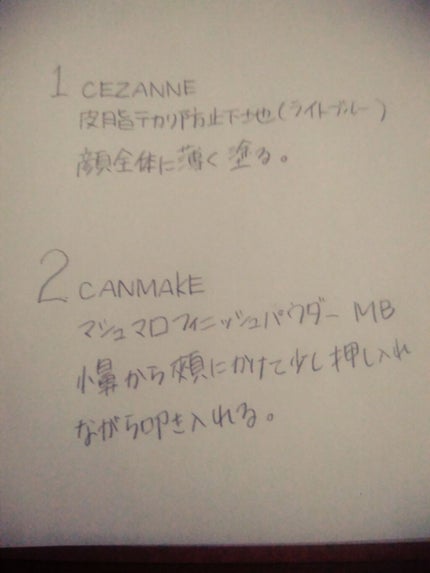 1 CEZANNE
皮脂テカリ防止下地(ライトブルー)
顔全体に薄く塗る。
2 CANMAKE
マシュマロフィニッシュパウダー MB
小鼻から頬にかけて少し押し入れ
ながら叩き入れる。